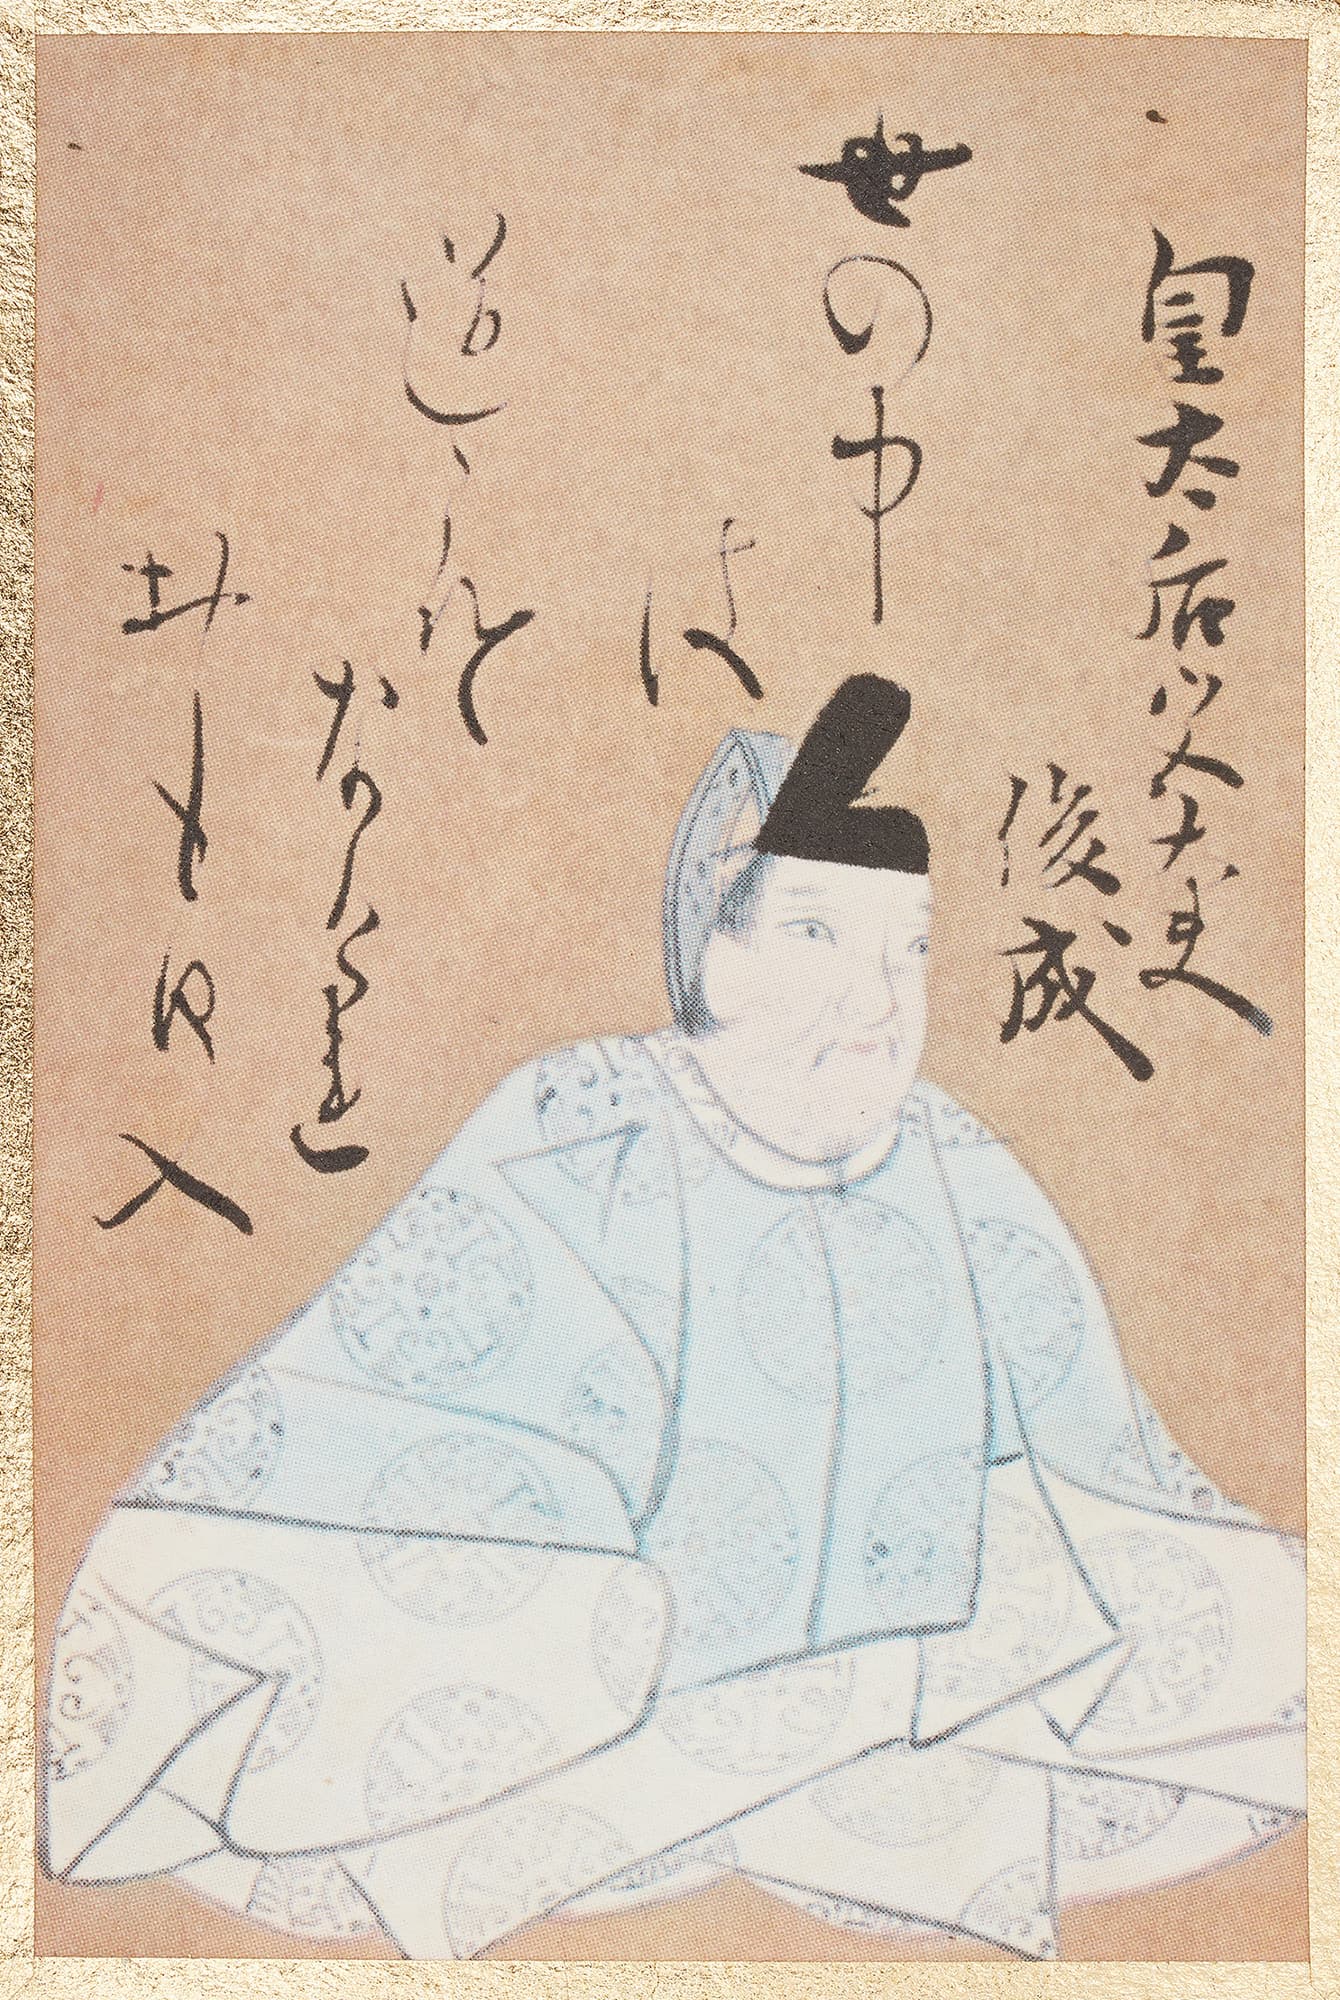 皇太后宮大夫
俊成
世の中
よ
道こそ
なけれ
おもひ入